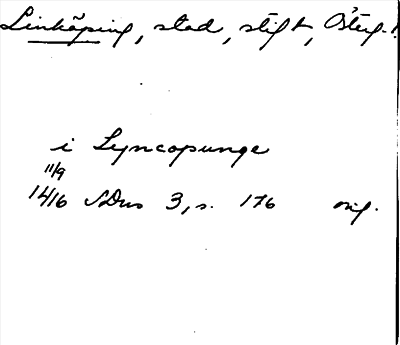 Linköping, stad, stift, Österg.!
i Lyncopunge
11/9
1416 SDns 3, s. 176 orig.